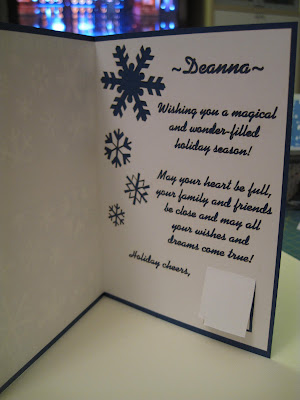 ~Deanna~
Wishing you a magical
and wonder-filled
holiday season!
May your heart be full,
your family and friends
be close and may all
your wishes and
dreams come true!
Holiday cheers,